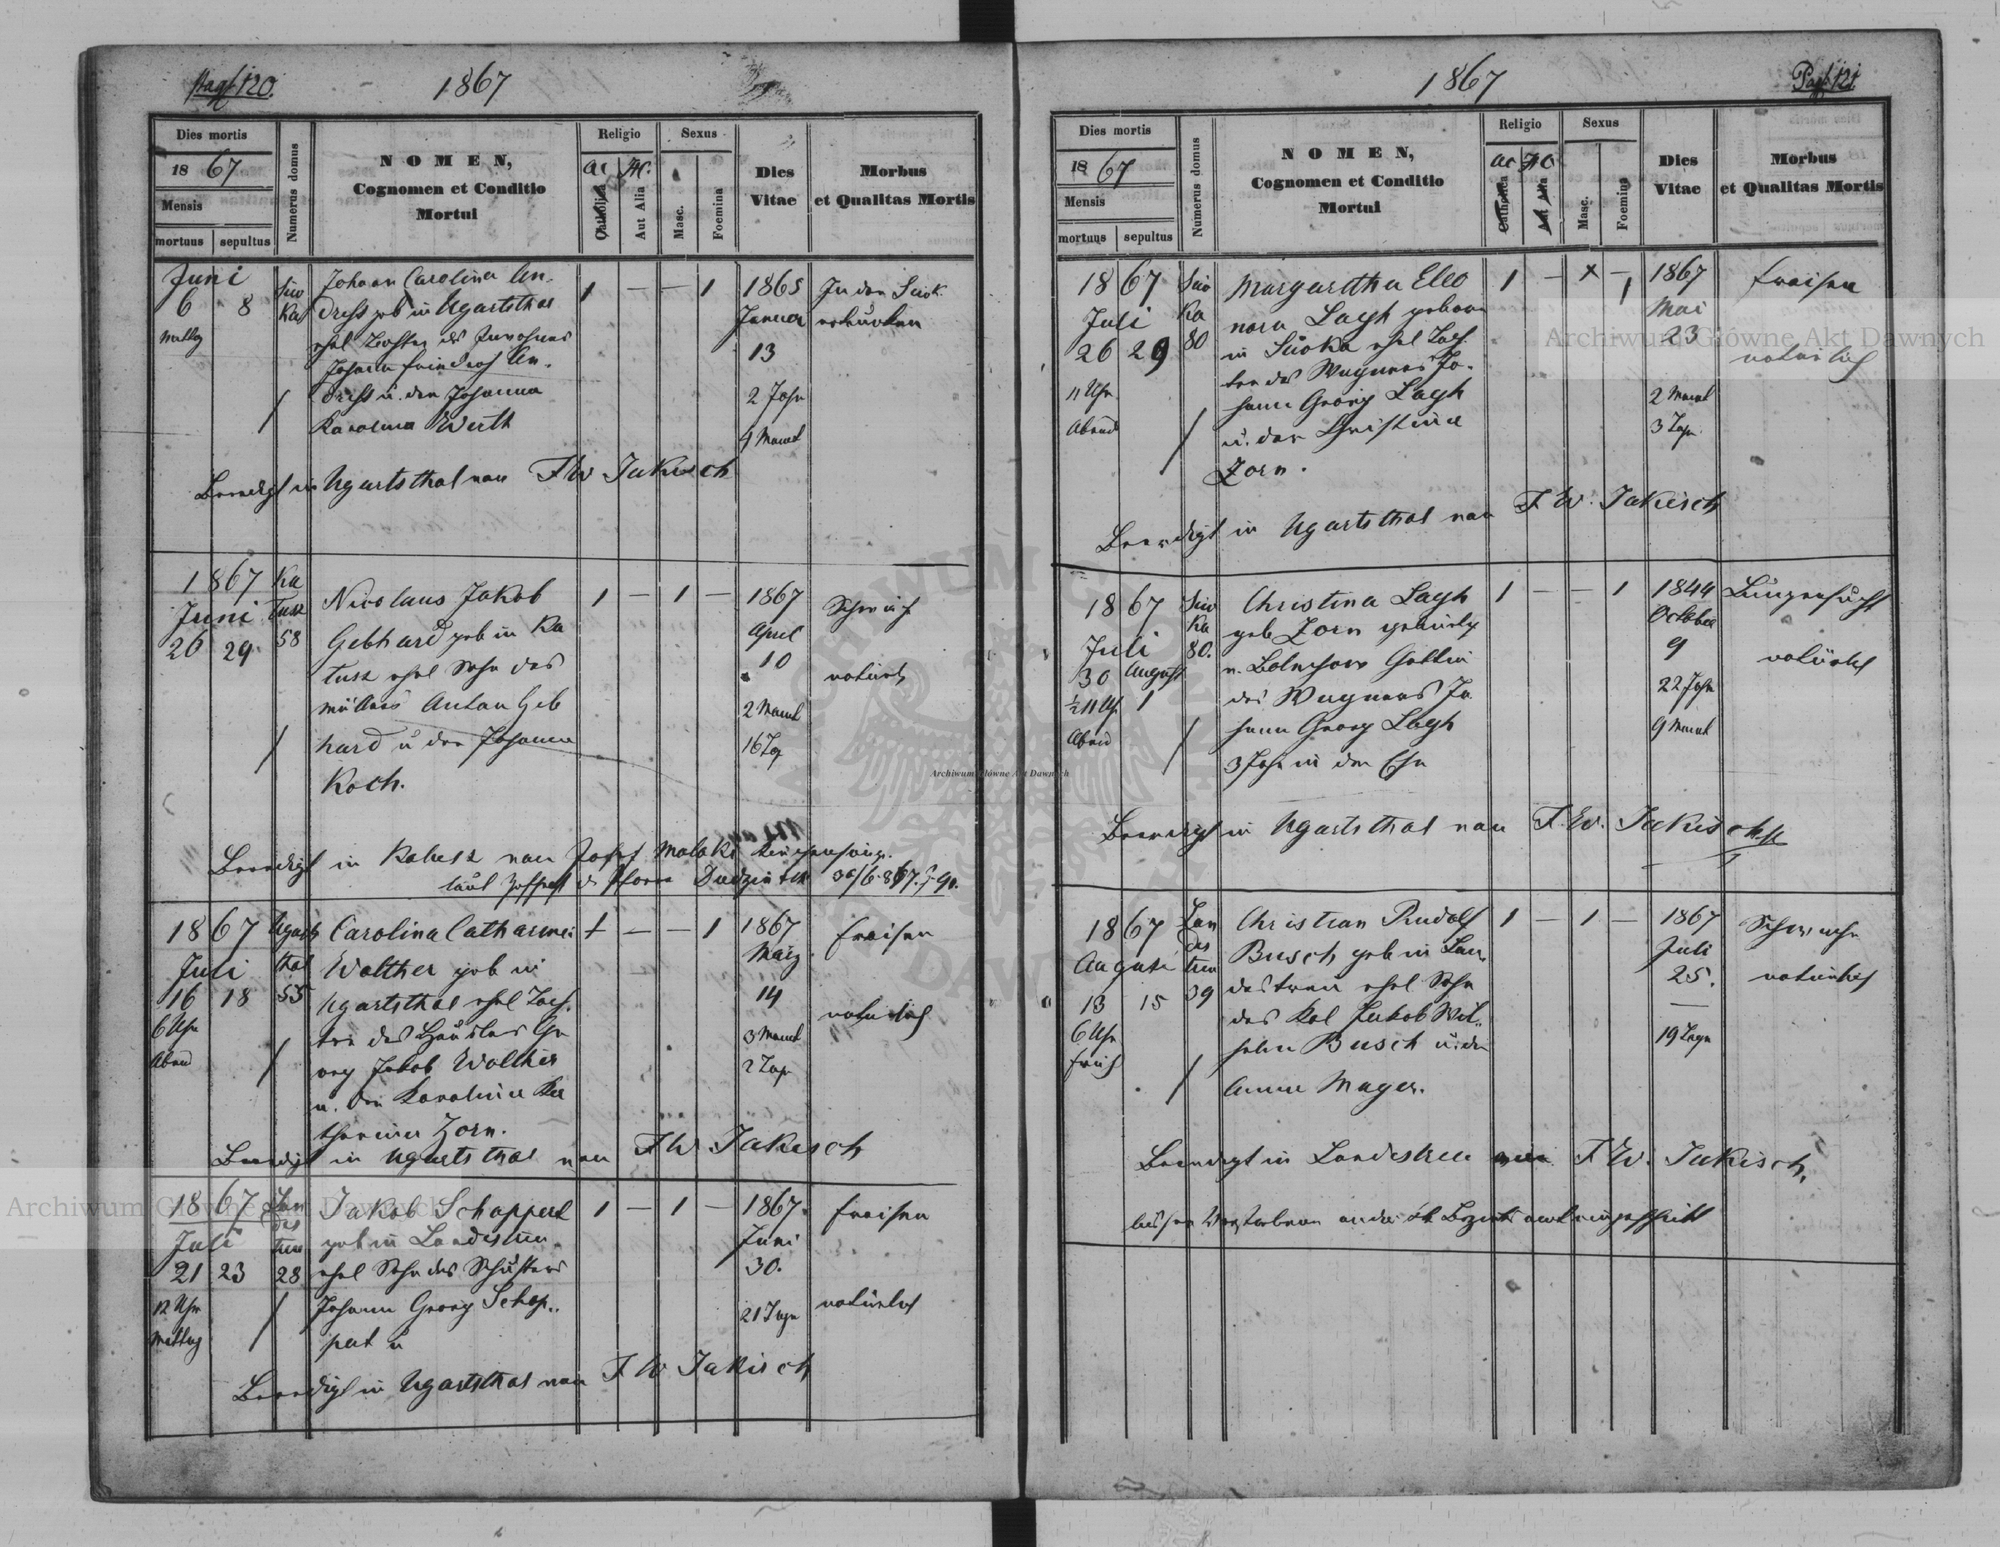 Pag 120.
1867
Dies mortis
1867
Mensis
mortuus sepultus
Numerus domus
NOMEN,
Cognomen et Conditio
Mortui
Religio
AC HC.
Catholica
Aut Alia
Sexus
Masc.
Foemina
Dies
Vitae
Morbus
et Qualitas Mortis
Juni
6 8
Mittag
Johann Carolina An-
dress geb in Ugartsthal
ehel Tochter des Inwohners
Johann Friedrich An-
dress u. der Johanna
Karolina Werth
1 — — 1
1865
Januar
13
2 Jahr
4 Monat
In der
ertrunken
Beerdigt in Ugartsthal von F W Jakisch
1867
Juni
26 29
Ka
lusz
58
Nicolaus Jakob
Gebhard geb in Ka
lusz ehel Sohn des
Müllers Anton Geb
hard u der Johanna
Koch.
1 — 1 —
1867
April
10
2 Monat
16 Tag
natürlich
Beerdigt in Kalusz von Josef Malaki
laut d. Pfarre 30/6 867.
1867
Juli
16 18
6 Uhr
Abend
Ugarts
thal
55
Carolina Catharina
Walther geb in
Ugartsthal ehel Toch-
ter des Häuslers Ge
org Jakob Walther
u. der Karolina Ka
tharina Zorn.
1 — — 1
1867
März
14
3 Monat
2 Tage
Fraisen
natürlich
Beerdigt in Ugartsthal von F W Jakisch
1867
Juli
21 23
12 Uhr
Mittag
Lan
des
treu
28
Jakob Schappert
geb in Landestreu
ehel Sohn des Schusters
Johann Georg Schap-
pert u
1 — 1 —
1867
Juni
30.
21 Tage
Fraisen
natürlich
Beerdigt in Ugartsthal von F W Jakisch
1867
Pag 121
Dies mortis
1867
Mensis
mortuus sepultus
Numerus domus
NOMEN,
Cognomen et Conditio
Mortui
Religio
AC HC
Catholica
Aut Alia
Sexus
Masc.
Foemina
Dies
Vitae
Morbus
et Qualitas Mortis
1867
Juli
26 29
11 Uhr
Abend
Siw
Ka
80
Margaretha Eleo
nora Lagh geboren
in Siwka ehel Toch-
ter des Wagners Jo-
hann Georg Lagh
u. der Christina
Zorn.
1 — × — 1
1867
Mai
23
2 Monat
3 Tage
Fraisen
natürlich
Beerdigt in Ugartsthal von F. W. Jakisch
1867
Juli
30 August
1
½ 11 Uhr
Abend
Siw
Ka
80.
Christina Lagh
geb Zorn gebürtig
v. Bolechow Gattin
des Wagners Jo
hann Georg Lagh
3 Jahr in der Ehe
1 — — 1
1844
October
9
22 Jahr
9 Monat
Lungensucht
natürlich
Beerdigt in Ugartsthal von F. W. Jakisch
1867
August
13 15
6 Uhr
früh
Lan
des
treu
39
Christian Rudolf
Busch geb in Lan-
destreu ehel Sohn
des Kol Jakob Wil-
helm Busch u. der
Anna Mayer.
1 — 1 —
1867
Juli
25.
19 Tage
Schwäche
natürlich
Beerdigt in Landestreu von F. W. Jakisch.
Archiwum Główne Akt Dawnych
Archiwum Główne Akt Dawnych
Archiwum Główne Akt Dawnych